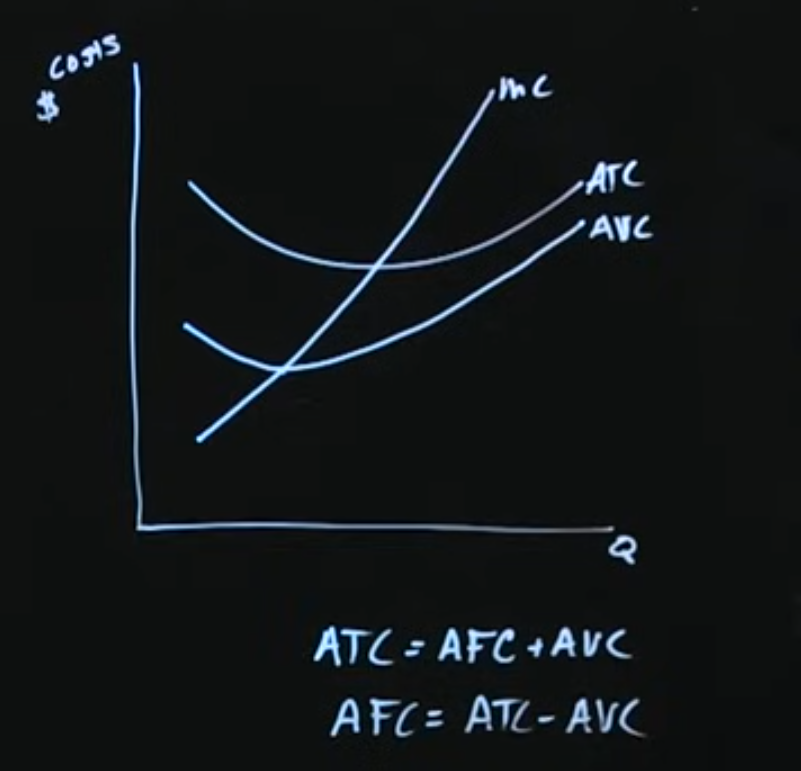 Costs
$
MC
ATC
AVC
Q
ATC = AFC + AVC
AFC = ATC - AVC